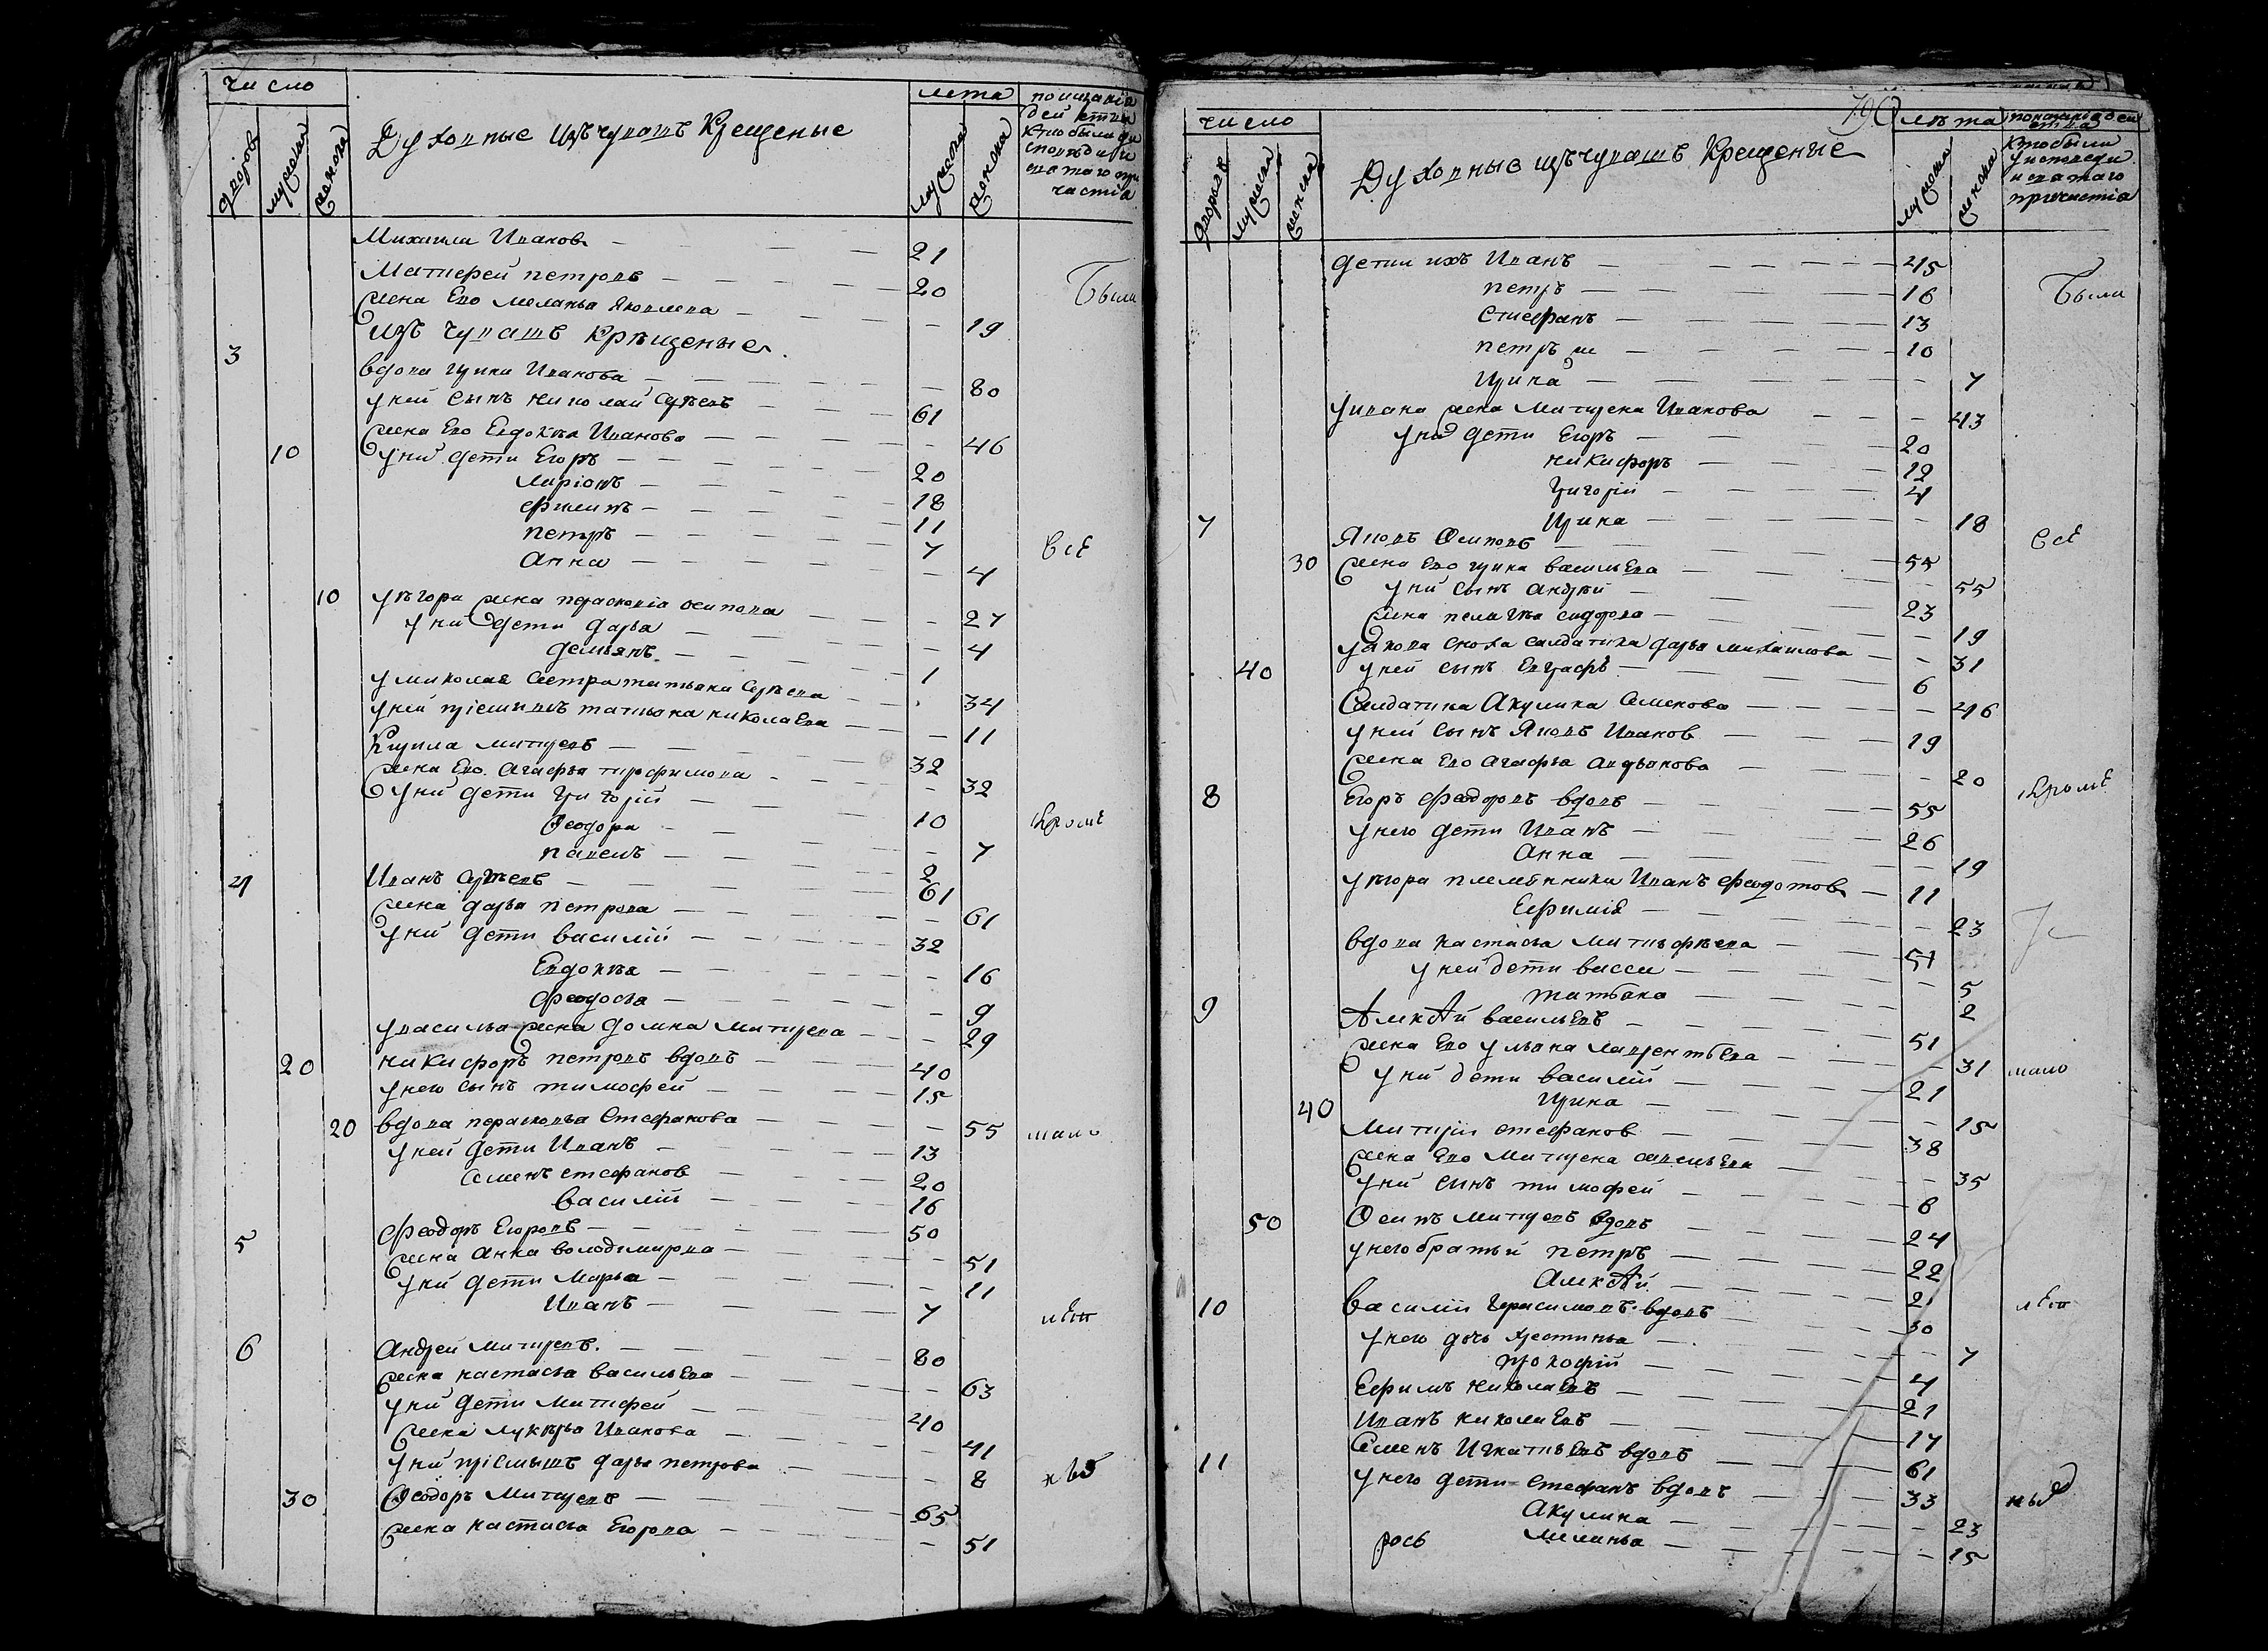 число
дворовъ
мужеска
женска
Духовные изъ чувашъ Крещеные
лета
мужеска
женска
Михаила Иванов 21
Матвей петровъ 20
Были
жена Его меланья Яковлева 19
изъ чувашъ Крещеные
3
вдова ирина Иванова 80
у ней сынъ николай 61
жена Его Евдокѣя Иванова 46
10 у них дети Егоръ 20
ларіонъ 18
филипъ 11
петръ 7
всЕ
Анна 4
10 у Егора жена парасковіа осипова 27
у них дети дарья 4
демьянъ 1
у николая сестра татьяна 34
у ней пріемышъ татьяна николаева 11
Кирила митревъ 32
жена Его агафья трофимова 32
у них дети григорій 10
Ѳеодора 7
кромЕ
павелъ 2
4 Иванъ 61
жена дарья петрова 61
у них дети василій 32
Евдокѣя 16
феодосья 9
у василья жена домна митрева 29
20 никифоръ петровъ вдовъ 40
у него сынъ тимофей 15
20 вдова парасковья стефанова 55
мало
у ней дети Иванъ 13
семенъ стефанов 20
василій 16
5 феодоръ Егоровъ 50
жена анна володимирва 51
у них дети Марья 11
Иванъ 7
лЕт
6 Андрей митревъ 80
жена настасья васильЕва 63
у них дети Матвфей 40
жена лукерья Иванова 41
у них пріемышъ дарья петрова 8
ныхъ
30 Ѳеодоръ Митревъ 65
жена настасья Егорова 51
790
число
дворовъ
мужеска
женска
Духовные изъ чувашъ Крещеные
лѣта
мужеска
женска
кто были
у исповеди
и святаго
причастіа
дети ихъ Иванъ 15
петръ 16
Были
Стефанъ 13
петръ ж 10
Ирина 7
у ивана жена Матрена Иванова 43
у них дети Егоръ 20
никифоръ 12
григорій 4
Ирина 18
7 Яковъ Осиповъ 55
всЕ
30 жена Его ирина васильЕва 55
у них сынъ андрей 23
жена пелагѣя сидорова 19
у якова сноха салдатка дарья михаилова 31
40 у ней сынъ Евграфъ 6
Салдатка Акулина Семенова 46
у ней сынъ Яковъ Иванов 19
жена Его агафья андрьянова 20
кромЕ
8 Егоръ феодоровъ вдовъ 55
у него дети Иванъ 26
Анна 19
у Егора племѣнники Иванъ феодотовъ 11
Ефимія 23
вдова настасья матвѣфѣева 51
у ней дети васса 5
татьяна 2
9 АлекѣЙ васильЕвъ 51
жена Его ульяна лаврентьЕва 31
мало
у них дети василій 21
40 Ирина 15
Митрій стефанов 38
жена Его Матрена савельЕва 35
у них сынъ тимофей 6
50 Осипъ митревъ вдовъ 24
у него братьи петръ 22
АлекѣЙ 2
10 василій герасимовъ вдовъ 30
лЕт
у него дочь хрестинья 7
прокофій 4
Ефимъ николаЕвъ 21
Иванъ николаЕвъ 17
11 Семенъ ИгнатьЕвъ вдовъ 61
у него дети Стефанъ вдовъ 33
ныхъ
Акулина 23
рось Меланья 15